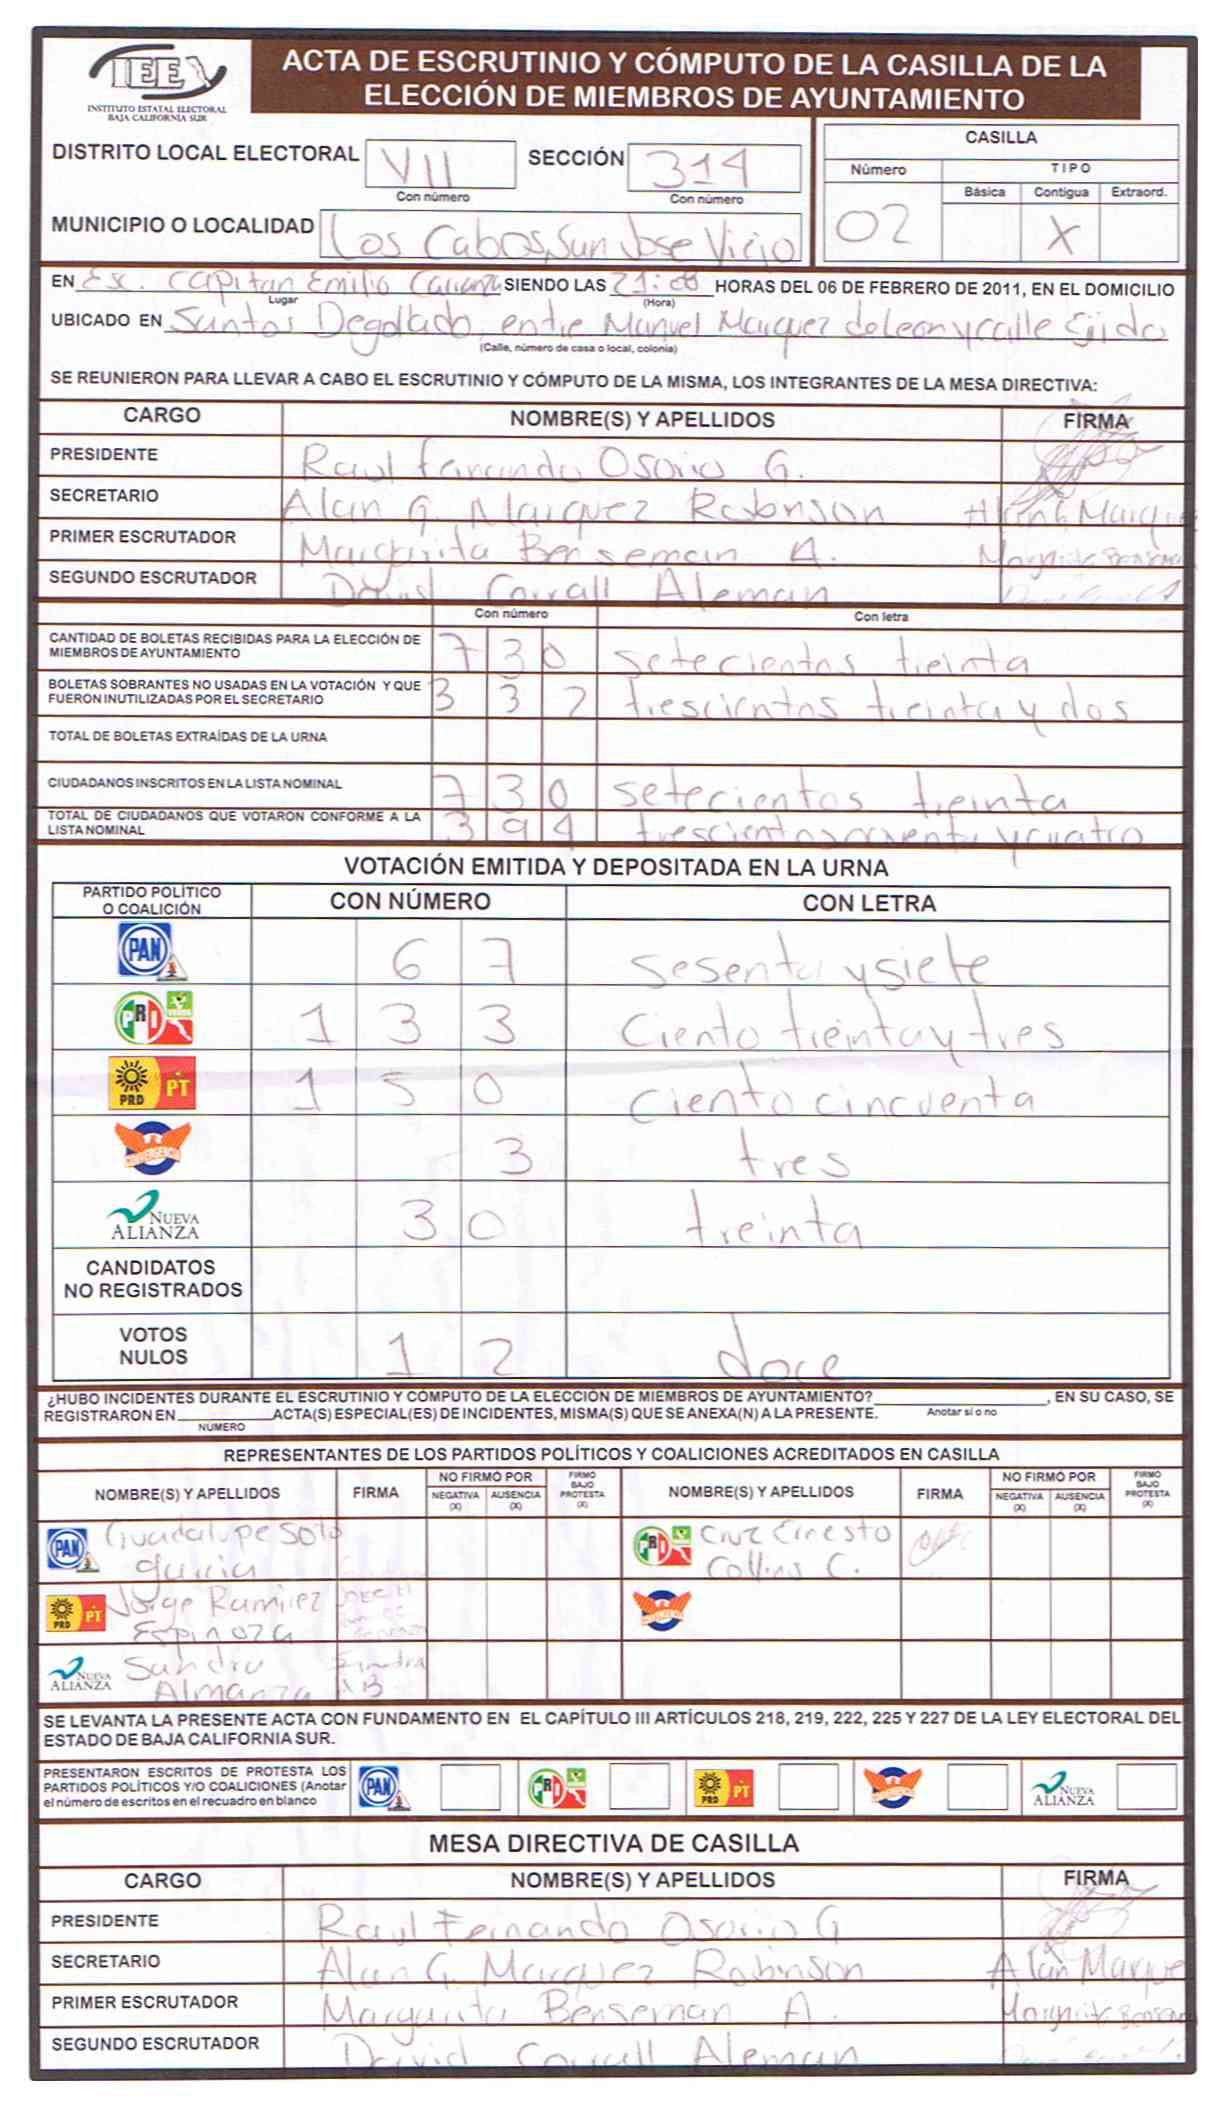 IEEX
INSTITUTO ESTATAL ELECTORAL
BAJA CALIFORNIA SUR
ACTA DE ESCRUTINIO Y CÓMPUTO DE LA CASILLA DE LA
ELECCIÓN DE MIEMBROS DE AYUNTAMIENTO
DISTRITO LOCAL ELECTORAL VII SECCIÓN 314
Con número Con número
MUNICIPIO O LOCALIDAD Los Cabos, San Jose Viejo
CASILLA
Número TIPO
Básica Contigua Extraord.
02 X
EN Esc. Capitan Emilio Carranza SIENDO LAS 21:00 HORAS DEL 06 DE FEBRERO DE 2011, EN EL DOMICILIO
Lugar (Hora)
UBICADO EN Santos Degollado entre Manuel Marquez de Leon y calle Ejido
(Calle, número de casa o local, colonia)
SE REUNIERON PARA LLEVAR A CABO EL ESCRUTINIO Y CÓMPUTO DE LA MISMA, LOS INTEGRANTES DE LA MESA DIRECTIVA:
CARGO NOMBRE(S) Y APELLIDOS FIRMA
PRESIDENTE Raul Fernando Osorio G.
SECRETARIO Alan G. Marquez Robinson Alan Marque
PRIMER ESCRUTADOR Margarita Benseman A. Margarita Benseman
SEGUNDO ESCRUTADOR David Corrall Aleman
Con número Con letra
CANTIDAD DE BOLETAS RECIBIDAS PARA LA ELECCIÓN DE
MIEMBROS DE AYUNTAMIENTO 7 3 0 setecientos treinta
BOLETAS SOBRANTES NO USADAS EN LA VOTACIÓN Y QUE
FUERON INUTILIZADAS POR EL SECRETARIO 3 3 2 trescientos treinta y dos
TOTAL DE BOLETAS EXTRAÍDAS DE LA URNA
CIUDADANOS INSCRITOS EN LA LISTA NOMINAL 7 3 0 setecientos treinta
TOTAL DE CIUDADANOS QUE VOTARON CONFORME A LA
LISTA NOMINAL 3 9 4 trescientos noventa y cuatro
VOTACIÓN EMITIDA Y DEPOSITADA EN LA URNA
PARTIDO POLÍTICO
O COALICIÓN CON NÚMERO CON LETRA
PAN 6 7 sesenta y siete
PRI 1 3 3 Ciento treinta y tres
PRD PT 1 5 0 ciento cincuenta
CONVERGENCIA 3 tres
NUEVA ALIANZA 3 0 treinta
CANDIDATOS
NO REGISTRADOS
VOTOS
NULOS 1 2 doce
¿HUBO INCIDENTES DURANTE EL ESCRUTINIO Y CÓMPUTO DE LA ELECCIÓN DE MIEMBROS DE AYUNTAMIENTO? , EN SU CASO, SE
REGISTRARON EN ACTA(S) ESPECIAL(ES) DE INCIDENTES, MISMA(S) QUE SE ANEXA(N) A LA PRESENTE. Anotar sí o no
NÚMERO
REPRESENTANTES DE LOS PARTIDOS POLÍTICOS Y COALICIONES ACREDITADOS EN CASILLA
NOMBRE(S) Y APELLIDOS FIRMA NO FIRMÓ POR NEGATIVA (X) AUSENCIA (X) FIRMÓ BAJO PROTESTA (X) NOMBRE(S) Y APELLIDOS FIRMA NO FIRMÓ POR NEGATIVA (X) AUSENCIA (X) FIRMÓ BAJO PROTESTA (X)
PAN Guadalupe Soto PRI Cruz Ernesto
garcia Collins C.
PRD PT Jorge Ramirez CONVERGENCIA
Espinoza
NUEVA ALIANZA Sandra Sandra
Almanza AB
SE LEVANTA LA PRESENTE ACTA CON FUNDAMENTO EN EL CAPÍTULO III ARTÍCULOS 218, 219, 222, 225 Y 227 DE LA LEY ELECTORAL DEL
ESTADO DE BAJA CALIFORNIA SUR.
PRESENTARON ESCRITOS DE PROTESTA LOS
PARTIDOS POLÍTICOS Y/O COALICIONES (Anotar
el número de escritos en el recuadro en blanco PAN PRI PRD PT CONVERGENCIA NUEVA ALIANZA
MESA DIRECTIVA DE CASILLA
CARGO NOMBRE(S) Y APELLIDOS FIRMA
PRESIDENTE Raul Fernando Osorio G
SECRETARIO Alan G. Marquez Robinson Alan Marque
PRIMER ESCRUTADOR Margarita Benseman A. Margarita Benseman
SEGUNDO ESCRUTADOR David Corrall Aleman